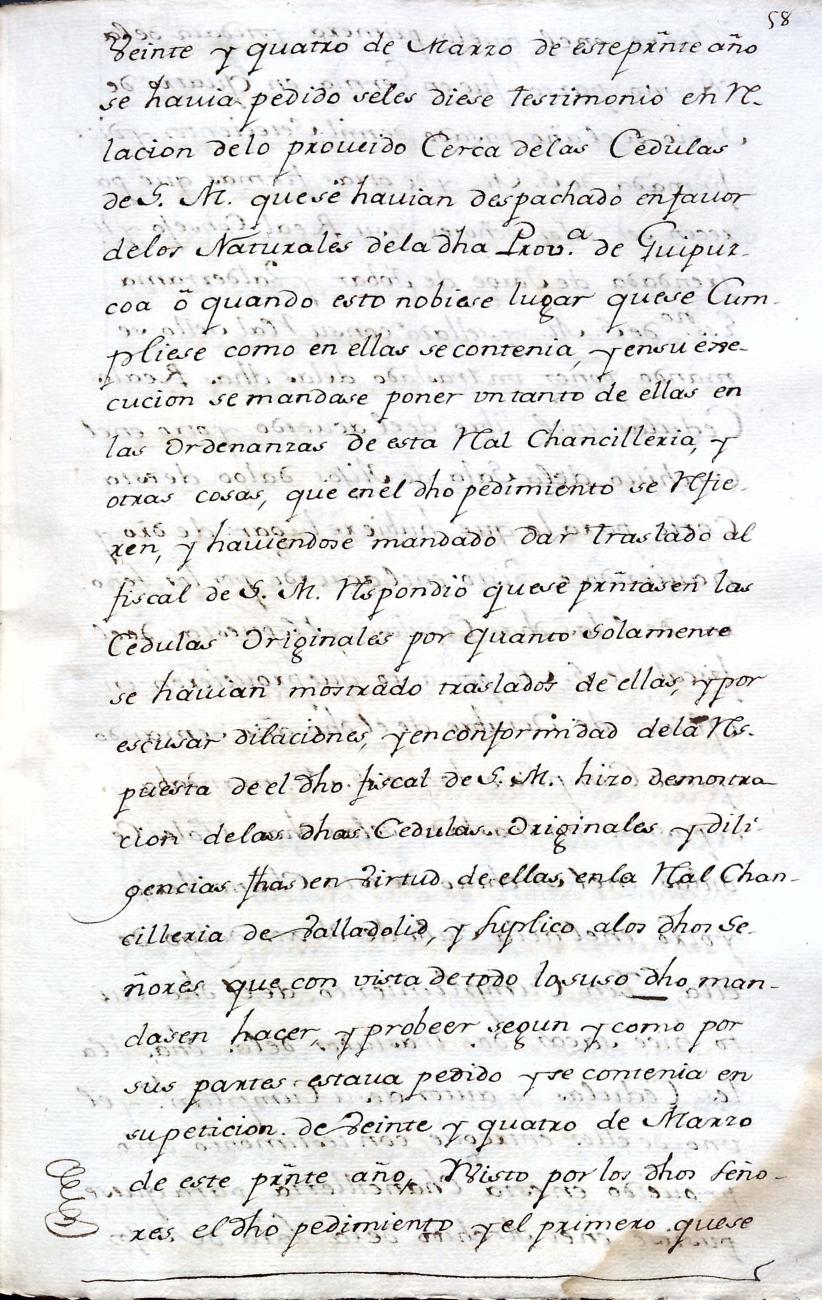 58
Veinte y quatro de Marzo de este prñte año
se havia pedido seles diese testimonio en Re-
lacion delo proueido Cerca delas Cedulas
de S. M. quese havian despachado en favor
delos Naturales dela dha Prov.ª de Guipuz-
coa ō quando esto nobiese lugar quese Cum-
pliese como en ellas se contenia, y ensu exe-
cucion se mandase poner vn tanto de ellas en
las Ordenanzas de esta Real Chancilleria, y
otras cosas, que en el dho pedimiento se Refie-
ren, y haviendose mandado dar traslado al
fiscal de S. M. Respondio quese prñtasen las
Cedulas Originales por quanto solamente
se havian mostrado traslados de ellas, y por
escusar dilaciones, y en conformidad dela Res-
puesta de el dho fiscal de S. M. hizo demostra
cion delas dhas Cedulas Originales y dili-
gencias fhas en Virtud de ellas, en la Real Chan-
cilleria de Valladolid, y suplico alos dhos Se-
ñores que con vista de todo lo suso dho man-
dasen hacer, y probeer segun y como por
sus partes estava pedido y se contenia en
su peticion de Veinte y quatro de Marzo
de este prñte año, Visto por los dhos Seño-
res el dho pedimiento y el primero quese